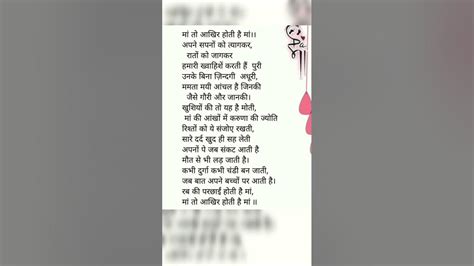 मां तो आखिर होती है मां।।
अपने सपनों को त्यागकर,
रातों को जागकर
हमारी ख्वाहिशें करती हैं पुरी
उनके बिना ज़िन्दगी अधूरी,
ममता मयी आंचल है जिनकी
जैसे गौरी और जानकी।
खुशियों की तो यह है मोती,
मां की आंखों में करुणा की ज्योति
रिश्तों को ये संजोए रखती,
सारे दर्द खुद ही सह लेती
अपनों पे जब संकट आती है
मौत से भी लड़ जाती है।
कभी दुर्गा कभी चंडी बन जाती,
जब बात अपने बच्चों पर आती है।
रब की परछाईं होती है मां,
मां तो आखिर होती है मां ॥